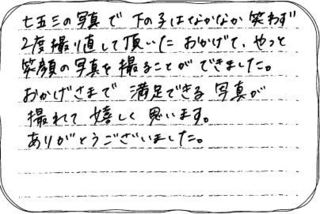 七五三の写真で下の子はなかなか笑わず
2度撮り直して頂いたおかげで、やっと
笑顔の写真を撮ることができました。
おかげさまで 満足できる写真が
撮れて嬉しく思います。
ありがとうございました。